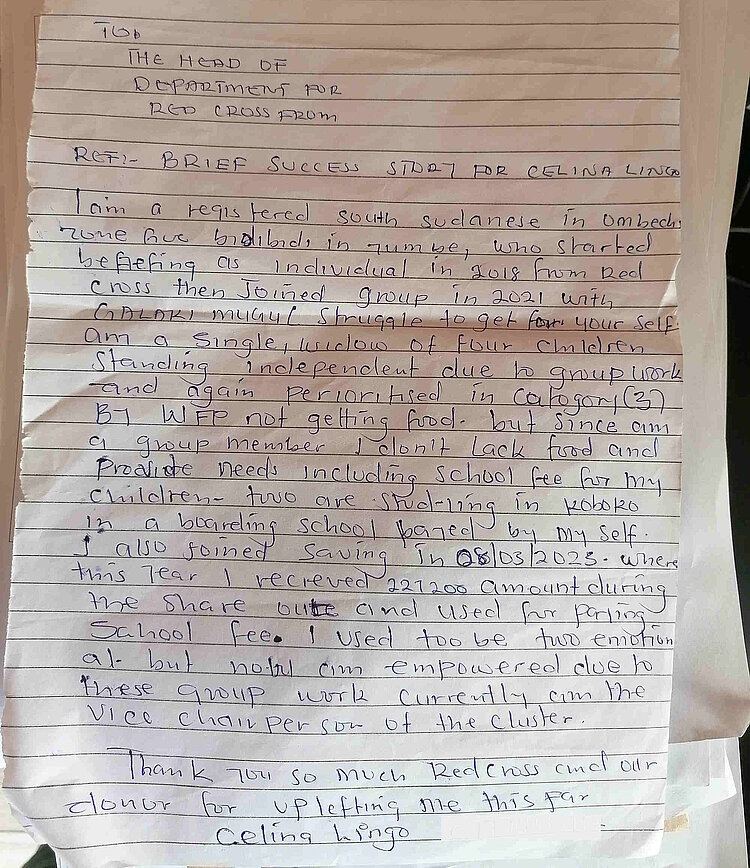 TO,
THE HEAD OF
DEPARTMENT FOR
RED CROSS FROM
REF:- BRIEF SUCCESS STORY FOR CELINA LINGO
I am a registered south sudanese in ombechi
zone five bidibidi in yumbe, who started
befiefing as individual in 2018 from Red
cross then Joined group in 2021 with
GALAKI MUGUL struggle to get for your self.
am a single, widow of four children
standing independent due to group work
and again perioritised in Catogory (3)
BY WFP not getting food. but since am
a group member I don't lack food and
produte needs including school fee for my
children- two are studying in koboko
in a boarding school payed by my self.
I also joined saving in 08/03/2023. where
this year I recieved 221200 amount during
the share oute and used for paying
School fee. I used too be two emotion
al. but now am empowered due to
these group work currently am the
vice chair person of the cluster.
Thank you so much Red cross and our
donor for uplefting me this far
Celina Lingo